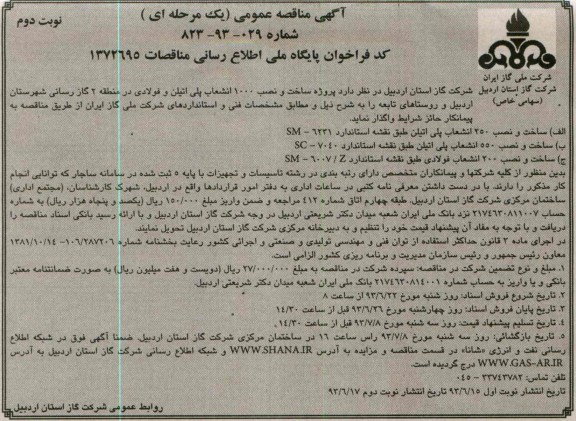 آگهی مناقصه عمومی (یک مرحله ای )
نوبت دوم
شماره ۰۲۹- ۹۳- ۸۲۳
کد فراخوان پایگاه ملی اطلاع رسانی مناقصات ۱۳۷۲۶۹۵
شرکت ملی گاز ایران
شرکت گاز استان اردبیل
(سهامی خاص)
شرکت گاز استان اردبیل در نظر دارد پروژه ساخت و نصب ۱۰۰۰ انشعاب پلی اتیلن و فولادی در منطقه ۲ گاز رسانی شهرستان
اردبیل و روستاهای تابعه را به شرح ذیل و مطابق مشخصات فنی و استانداردهای شرکت ملی گاز ایران از طریق مناقصه به
پیمانکار حائز شرایط واگذار نماید.
الف) ساخت و نصب ۲۵۰ انشعاب پلی اتیلن طبق نقشه استاندارد SM – ۶۲۳۱
ب) ساخت و نصب ۵۵۰ انشعاب پلی اتیلن طبق نقشه استاندارد SC – ۷۰۴۰
ج) ساخت و نصب ۲۰۰ انشعاب فولادی طبق نقشه استاندارد SM – ۶۰۰۷ / Z
بدین منظور از کلیه شرکتها و پیمانکاران متخصص دارای رتبه بندی در رشته تاسیسات و تجهیزات با پایه ۵ ثبت شده در سامانه ساجار که توانایی انجام
کار مذکور را دارند، با در دست داشتن معرفی نامه کتبی در ساعات اداری به دفتر امور قراردادها واقع در اردبیل، شهرک کارشناسان، (مجتمع اداری)
ساختمان مرکزی شرکت گاز استان اردبیل، طبقه چهارم اتاق شماره ۴۱۲ مراجعه و ضمن واریز مبلغ ۱۵۰/۰۰۰ ریال (یکصد و پنجاه هزار ریال) به شماره
حساب ۲۱۷۴۶۳۰۸۱۱۰۰۷ نزد بانک ملی ایران شعبه میدان دکتر شریعتی اردبیل در وجه شرکت گاز استان اردبیل و با ارائه رسید بانکی اسناد مناقصه را
دریافت و با توجه به مفاد آن پیشنهاد قیمت خود را تنظیم و به دبیرخانه مرکزی شرکت گاز استان اردبیل تحویل نمایند.
در اجرای ماده ۳ قانون حداکثر استفاده از توان فنی و مهندسی تولیدی و صنعتی و اجرائی کشور رعایت بخشنامه شماره ۱۰۶/۲۸۷۲۰۶- ۱۳۸۱/۱۰/۱۴
معاون رئیس جمهور و رئیس سازمان مدیریت و برنامه ریزی کشور الزامی است.
۱. مبلغ و نوع تضمین شرکت در مناقصه: سپرده شرکت در مناقصه به مبلغ ۲۷/۰۰۰/۰۰۰ ریال (دویست و هفت میلیون ریال) به صورت ضمانتنامه معتبر
بانکی و یا واریز به حساب شماره ۲۱۷۴۶۳۰۸۱۴۰۰۱ بانک ملی ایران شعبه میدان دکتر شریعتی اردبیل.
۲. تاریخ شروع فروش اسناد: روز شنبه مورخ ۹۳/۶/۲۲ از ساعت ۸
۳. تاریخ پایان فروش اسناد: روز چهارشنبه مورخ ۹۳/۶/۲۶ قبل از ساعت ۱۴/۳۰
۴. تاریخ تسلیم پیشنهاد قیمت: روز سه شنبه مورخ ۹۳/۷/۸ قبل از ساعت ۱۴/۳۰.
۵. تاریخ بازگشائی: روز سه شنبه مورخ ۹۳/۷/۸ راس ساعت ۱۶ در ساختمان مرکزی شرکت گاز استان اردبیل. ضمنا آگهی فوق در شبکه اطلاع
رسانی نفت و انرژی «شانا» در قسمت مناقصه و مزایده به آدرس WWW.SHANA.IR و شبکه اطلاع رسانی شرکت گاز استان اردبیل به آدرس
WWW.GAS-AR.IR درج گردیده است.
تلفن تماس: ۳۳۷۴۳۷۸۲ - ۰۴۵
تاریخ انتشار نوبت اول ۹۳/۶/۱۵ تاریخ انتشار نوبت دوم ۹۳/۶/۱۷
روابط عمومی شرکت گاز استان اردبیل